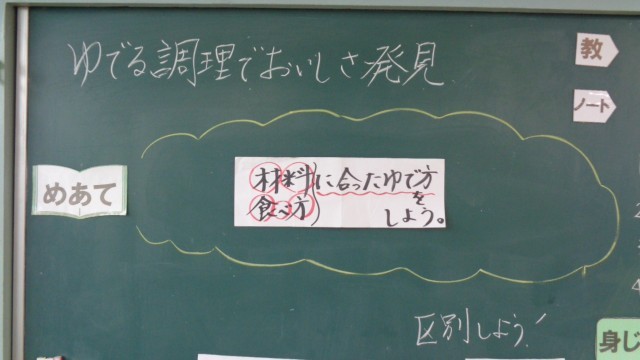 ゆでる調理でおいしさ発見
教
ノート
めあて
材料に合ったゆで方を
食べ方 しよう。
区別しよう!
身じ